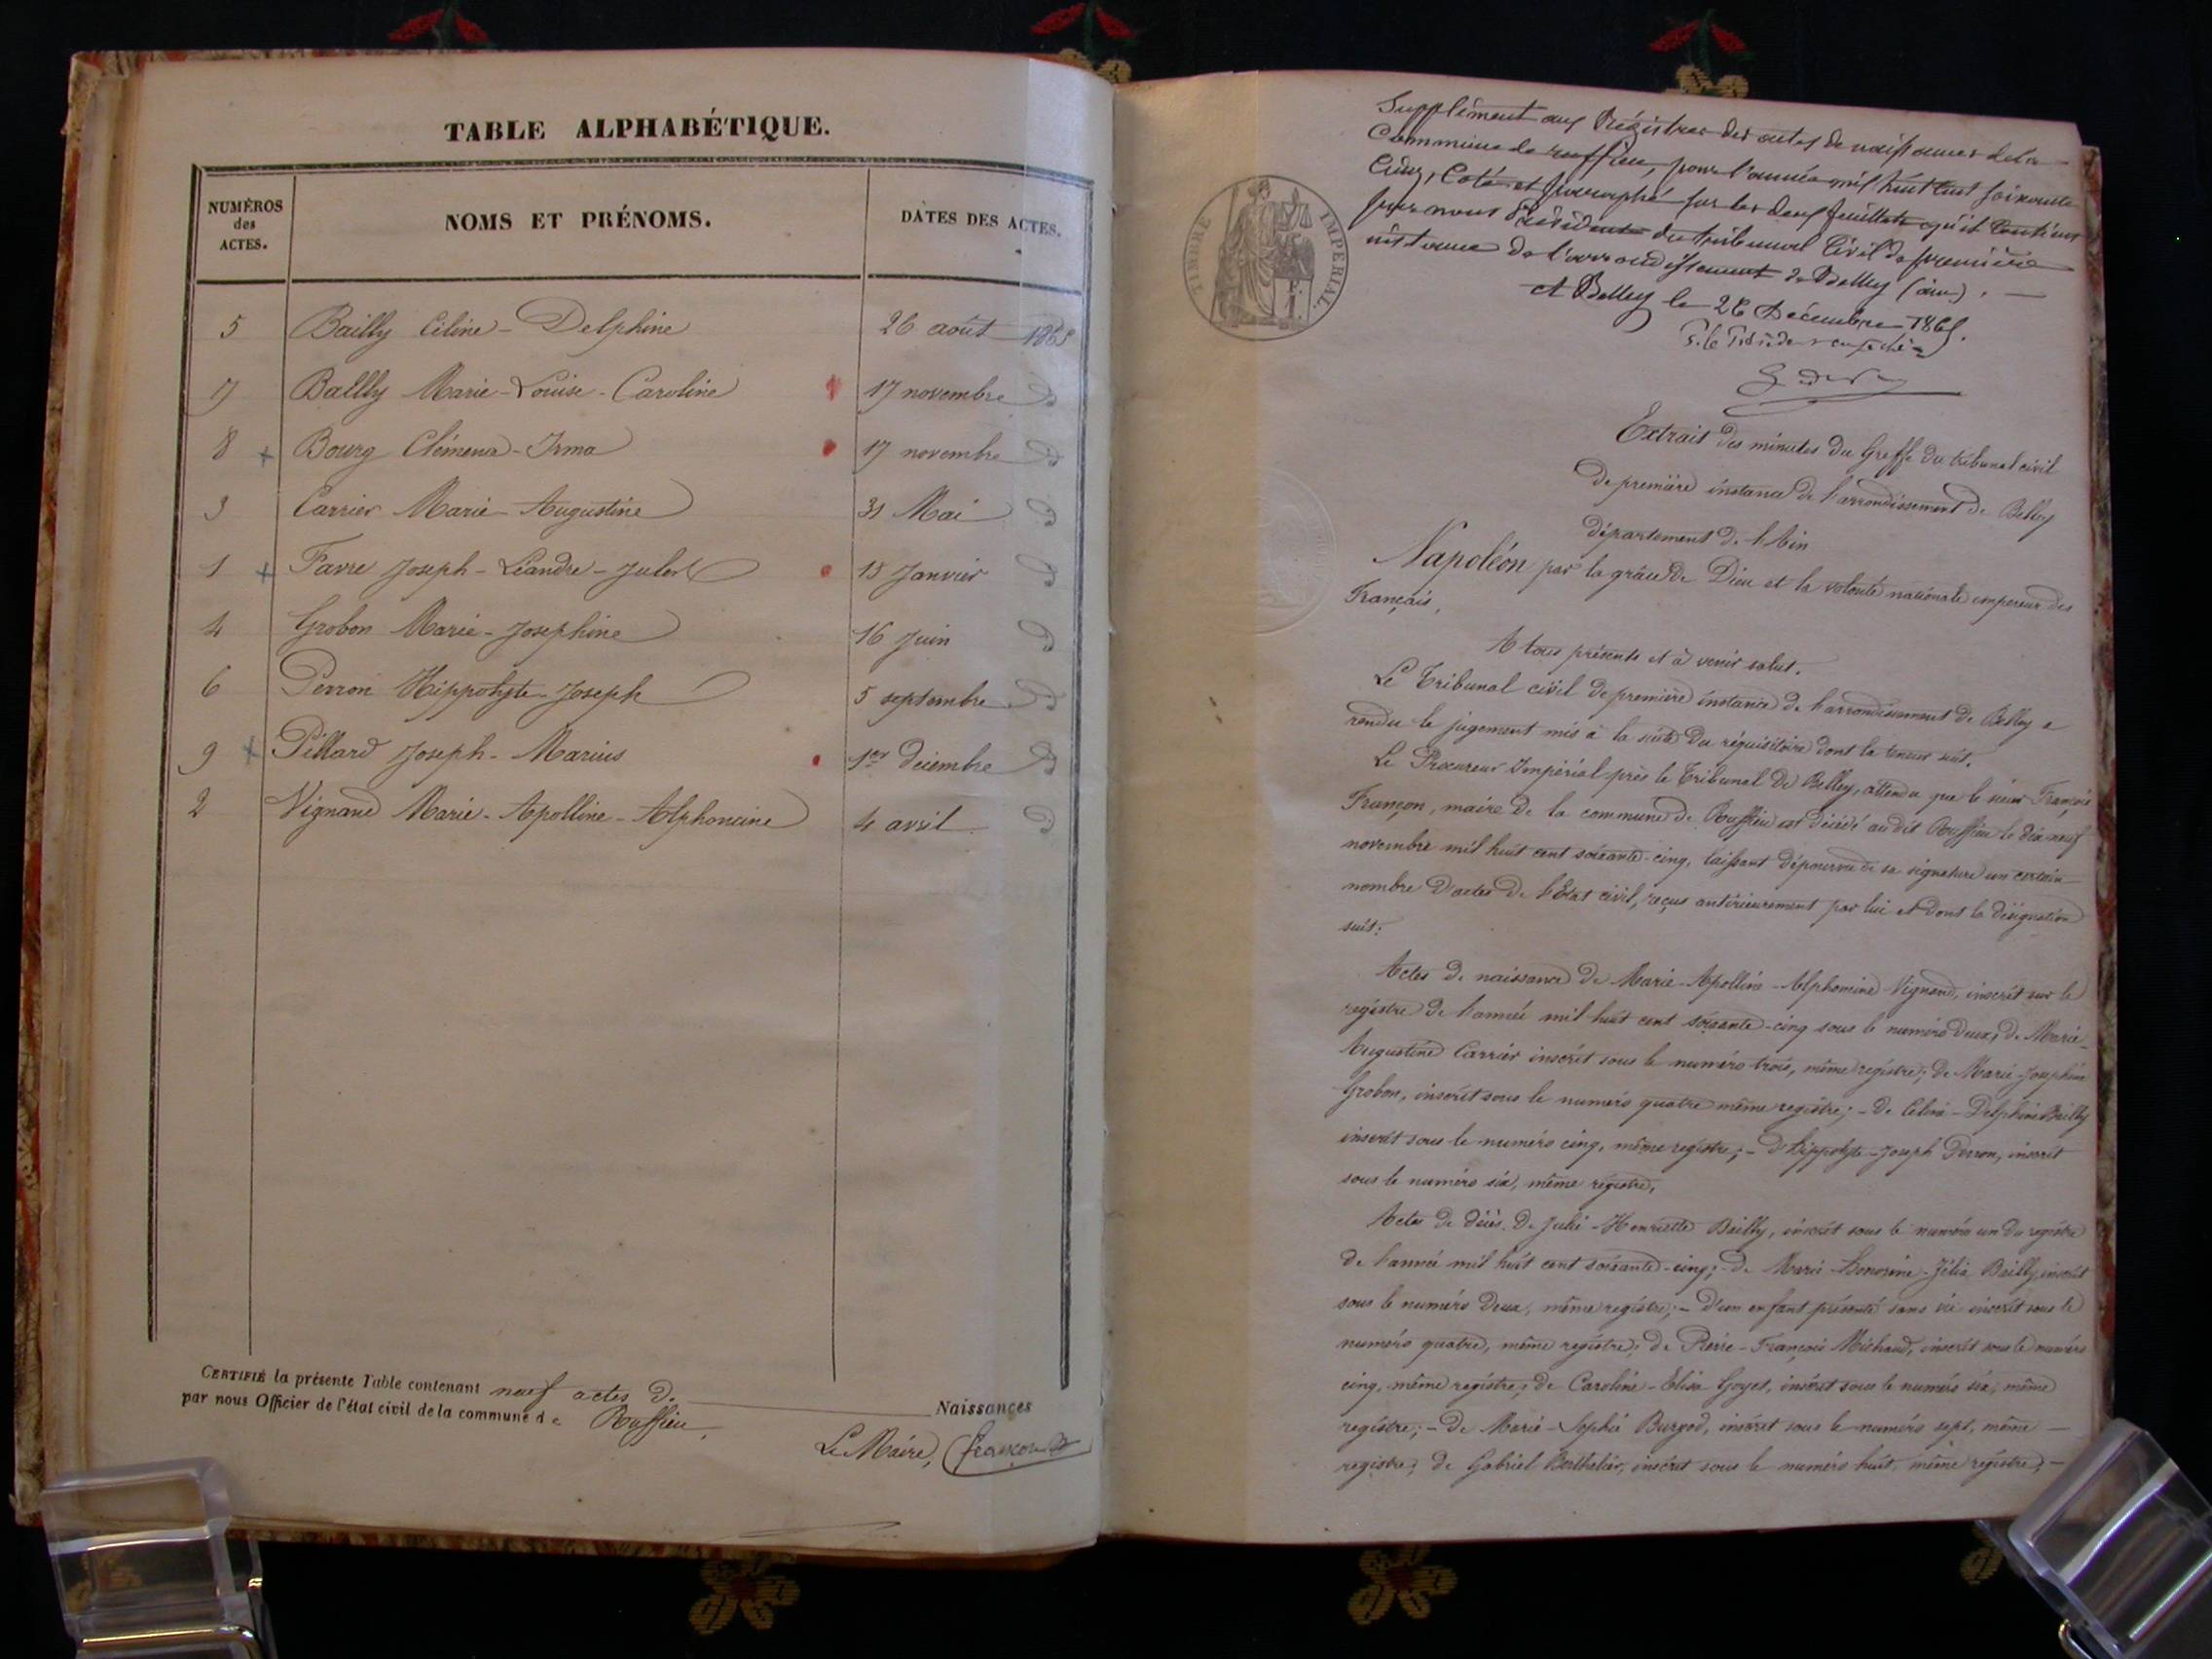 TABLE ALPHABÉTIQUE.
NUMÉROS
des
ACTES.
NOMS ET PRÉNOMS.
DATES DES ACTES.
5 Bailly Céline - Delphine 26 août 1865
7 Bailly Marie - Louise - Caroline 17 novembre d
8 + Bourg Clémence - Irma 17 novembre d
3 Carrier Marie - Augustine 31 Mai d
1 + Favre Joseph - Léandre - Jules 18 Janvier d
4 Grobon Marie - Josephine 16 Juin d
6 Perron Hippolyte - Joseph 5 septembre d
9 + Pillard Joseph - Marius 1er décembre d
2 Vignand Marie - Apolline - Alphonsine 4 avril d
CERTIFIÉ la présente Table contenant neuf actes de Naissances
par nous Officier de l'état civil de la commune de Ruffieu,
Le Maire, Françon
TIMBRE IMPERIAL.
Supplément aux Régistres des actes de naissances de la
Commune de ruffieu, pour l'année mil huit cent soixante
Cinq, Coté et paraphé sur les deux feuillets qu'il contient
par nous Président du tribunal Civil de première
instance de l'arrondissement de Belley (ain). —
A Belley le 26 Décembre 1865.
P. le Président empêché
Extrait des minutes du Greffe du tribunal civil
de première instance de l'arrondissement de Belley
département de l'Ain
Napoléon par la grâce de Dieu et la volonté nationale empereur des
Français,
A tous présents et à venir salut.
Le Tribunal civil de première instance de l'arrondissement de Belley a
rendu le jugement mis à la suite du réquisitoire dont la teneur suit.
Le Procureur Impérial près le Tribunal de Belley, attendu que le sieur François
Françon, maire de la commune de Ruffieu est décédé audit Ruffieu le dix neuf
novembre mil huit cent soixante-cinq, laissant dépourvu de sa signature un certain
nombre d'actes de l'Etat civil, reçus antérieurement par lui et dont la désignation
suit:
Actes de naissance de Marie-Apolline-Alphonsine Vignand, inscrit sur le
régistre de l'année mil huit cent soixante-cinq sous le numéro deux; de Marie-
Augustine Carrier inscrit sous le numéro trois, même régistre; de Marie-Josephine
Grobon, inscrit sous le numéro quatre même régistre; - de Céline-Delphine Bailly
inscrit sous le numéro cinq, même régistre; - d'Hippolyte-Joseph Perron, inscrit
sous le numéro six, même régistre,
Actes de décès de Julie-Henriette Bailly, inscrit sous le numéro un du régistre
de l'année mil huit cent soixante-cinq; - de Marie-Honorine-Zélia Bailly, inscrit
sous le numéro deux, même régistre; - d'un enfant présenté sans vie inscrit sous le
numéro quatre, même régistre; de Pierre-François Michaud, inscrit sous le numéro
cinq, même régistre; de Caroline-Elisa Goyet, inscrit sous le numéro six, même
régistre; - de Marie-Sophie Burgod, inscrit sous le numéro sept, même —
régistre; de Gabriel Berthelier, inscrit sous le numéro huit, même régistre; —